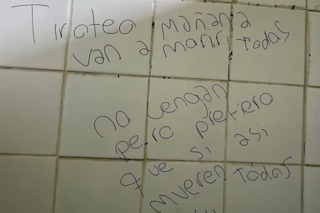 Tiroteo mañana
van a mariri todas
no vengan
pero prefiero
que si asi
mueren todas